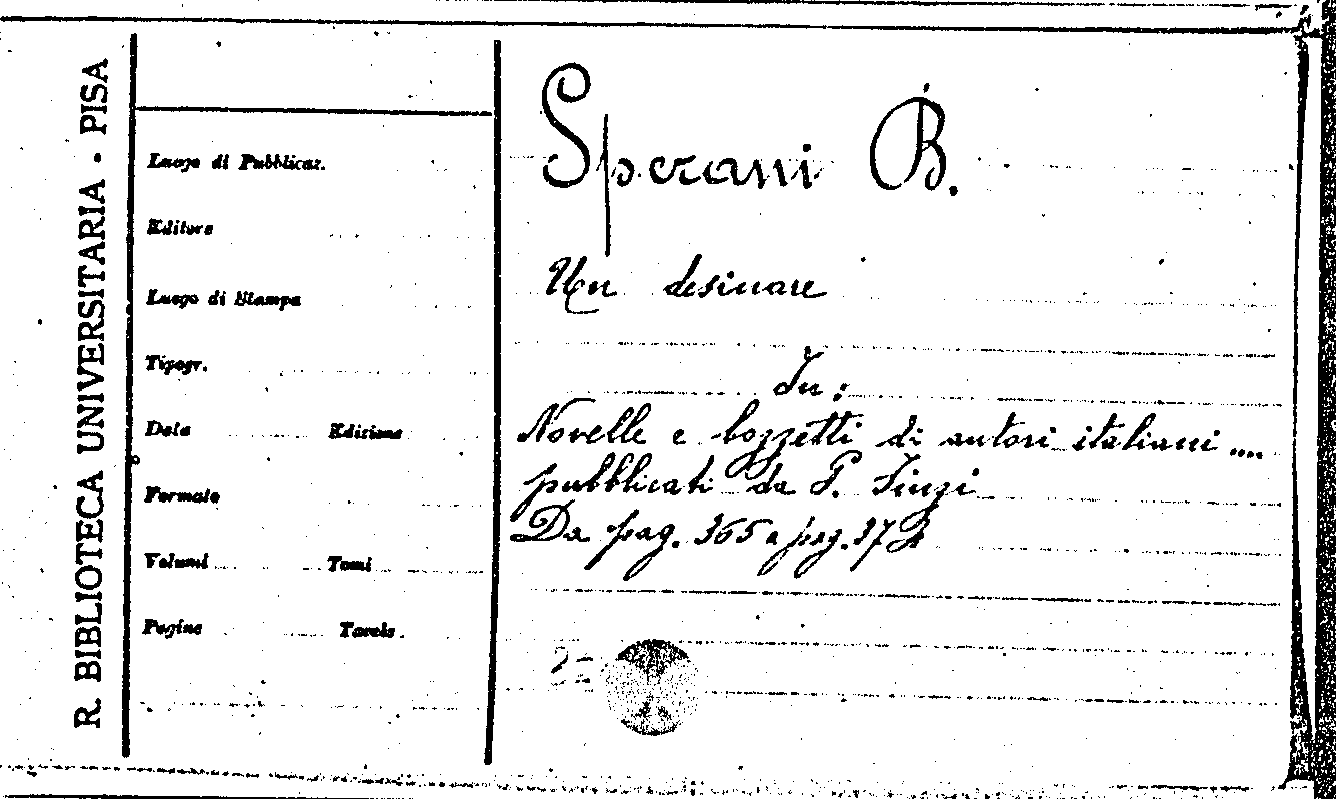 R. BIBLIOTECA UNIVERSITARIA - PISA
Luogo di Pubblicaz.
Editore
Luogo di Stampa
Tipogr.
Data Edizione
Formato
Volumi Tomi
Pagine Tavole.
Sperani B.
Un desinare
In:
Novelle e bozzetti di autori italiani ....
pubblicati da G. Finzi
Da pag. 365 a pag.